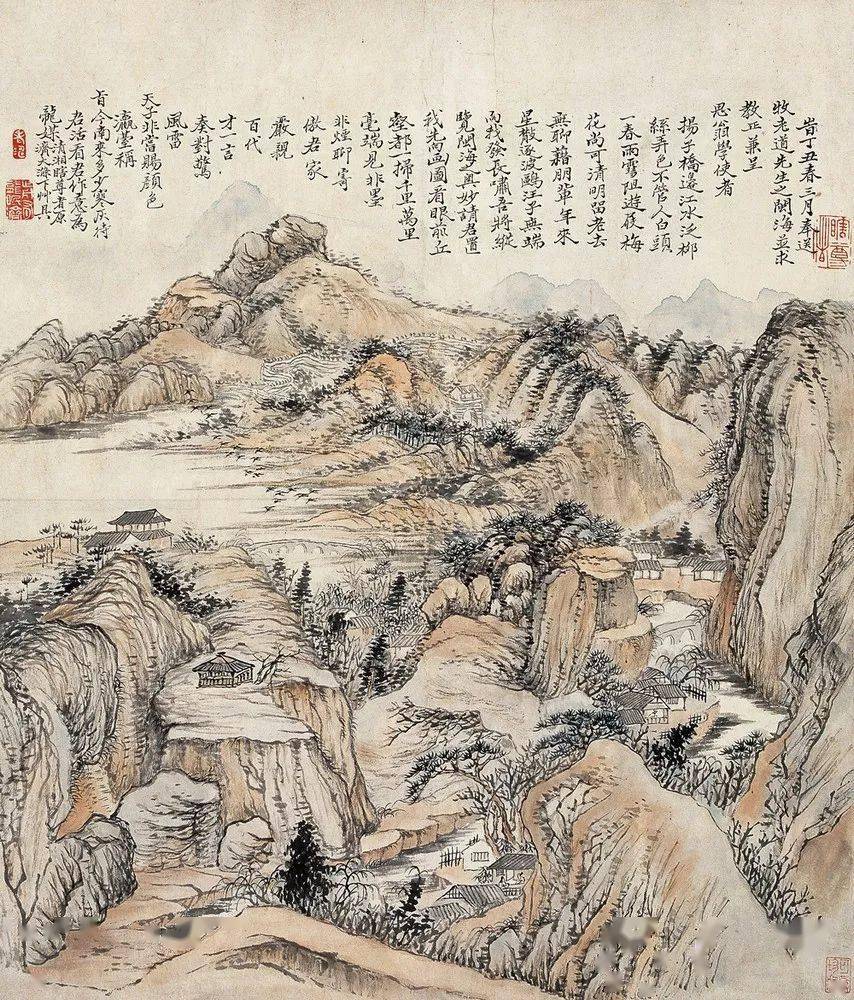 旹丁丑春三月奉送
牧老道先生之閩海並求
教正兼呈
思翁學使者
揚子橋邊江水泛柳
絲弄色不管人白頭
一春雨雪阻遊屐梅
花尚可清明留老去
無聊藉朋輩年來
星散逐波鷗汪子無端
向我發長嘯吾將縱
覽閩海奧妙請君置
我先畫圖看眼前丘
壑都一掃千里萬里
毫端見非墨
非煙聊寄
傲君家
嚴親
百代
才一言
奏對驚
風雷
天子非當賜顏色
瀛臺稱
旨今南來多少寒灰待
君活看君作意為
龍媒 清湘瞎尊者原
濟大滌下艸具